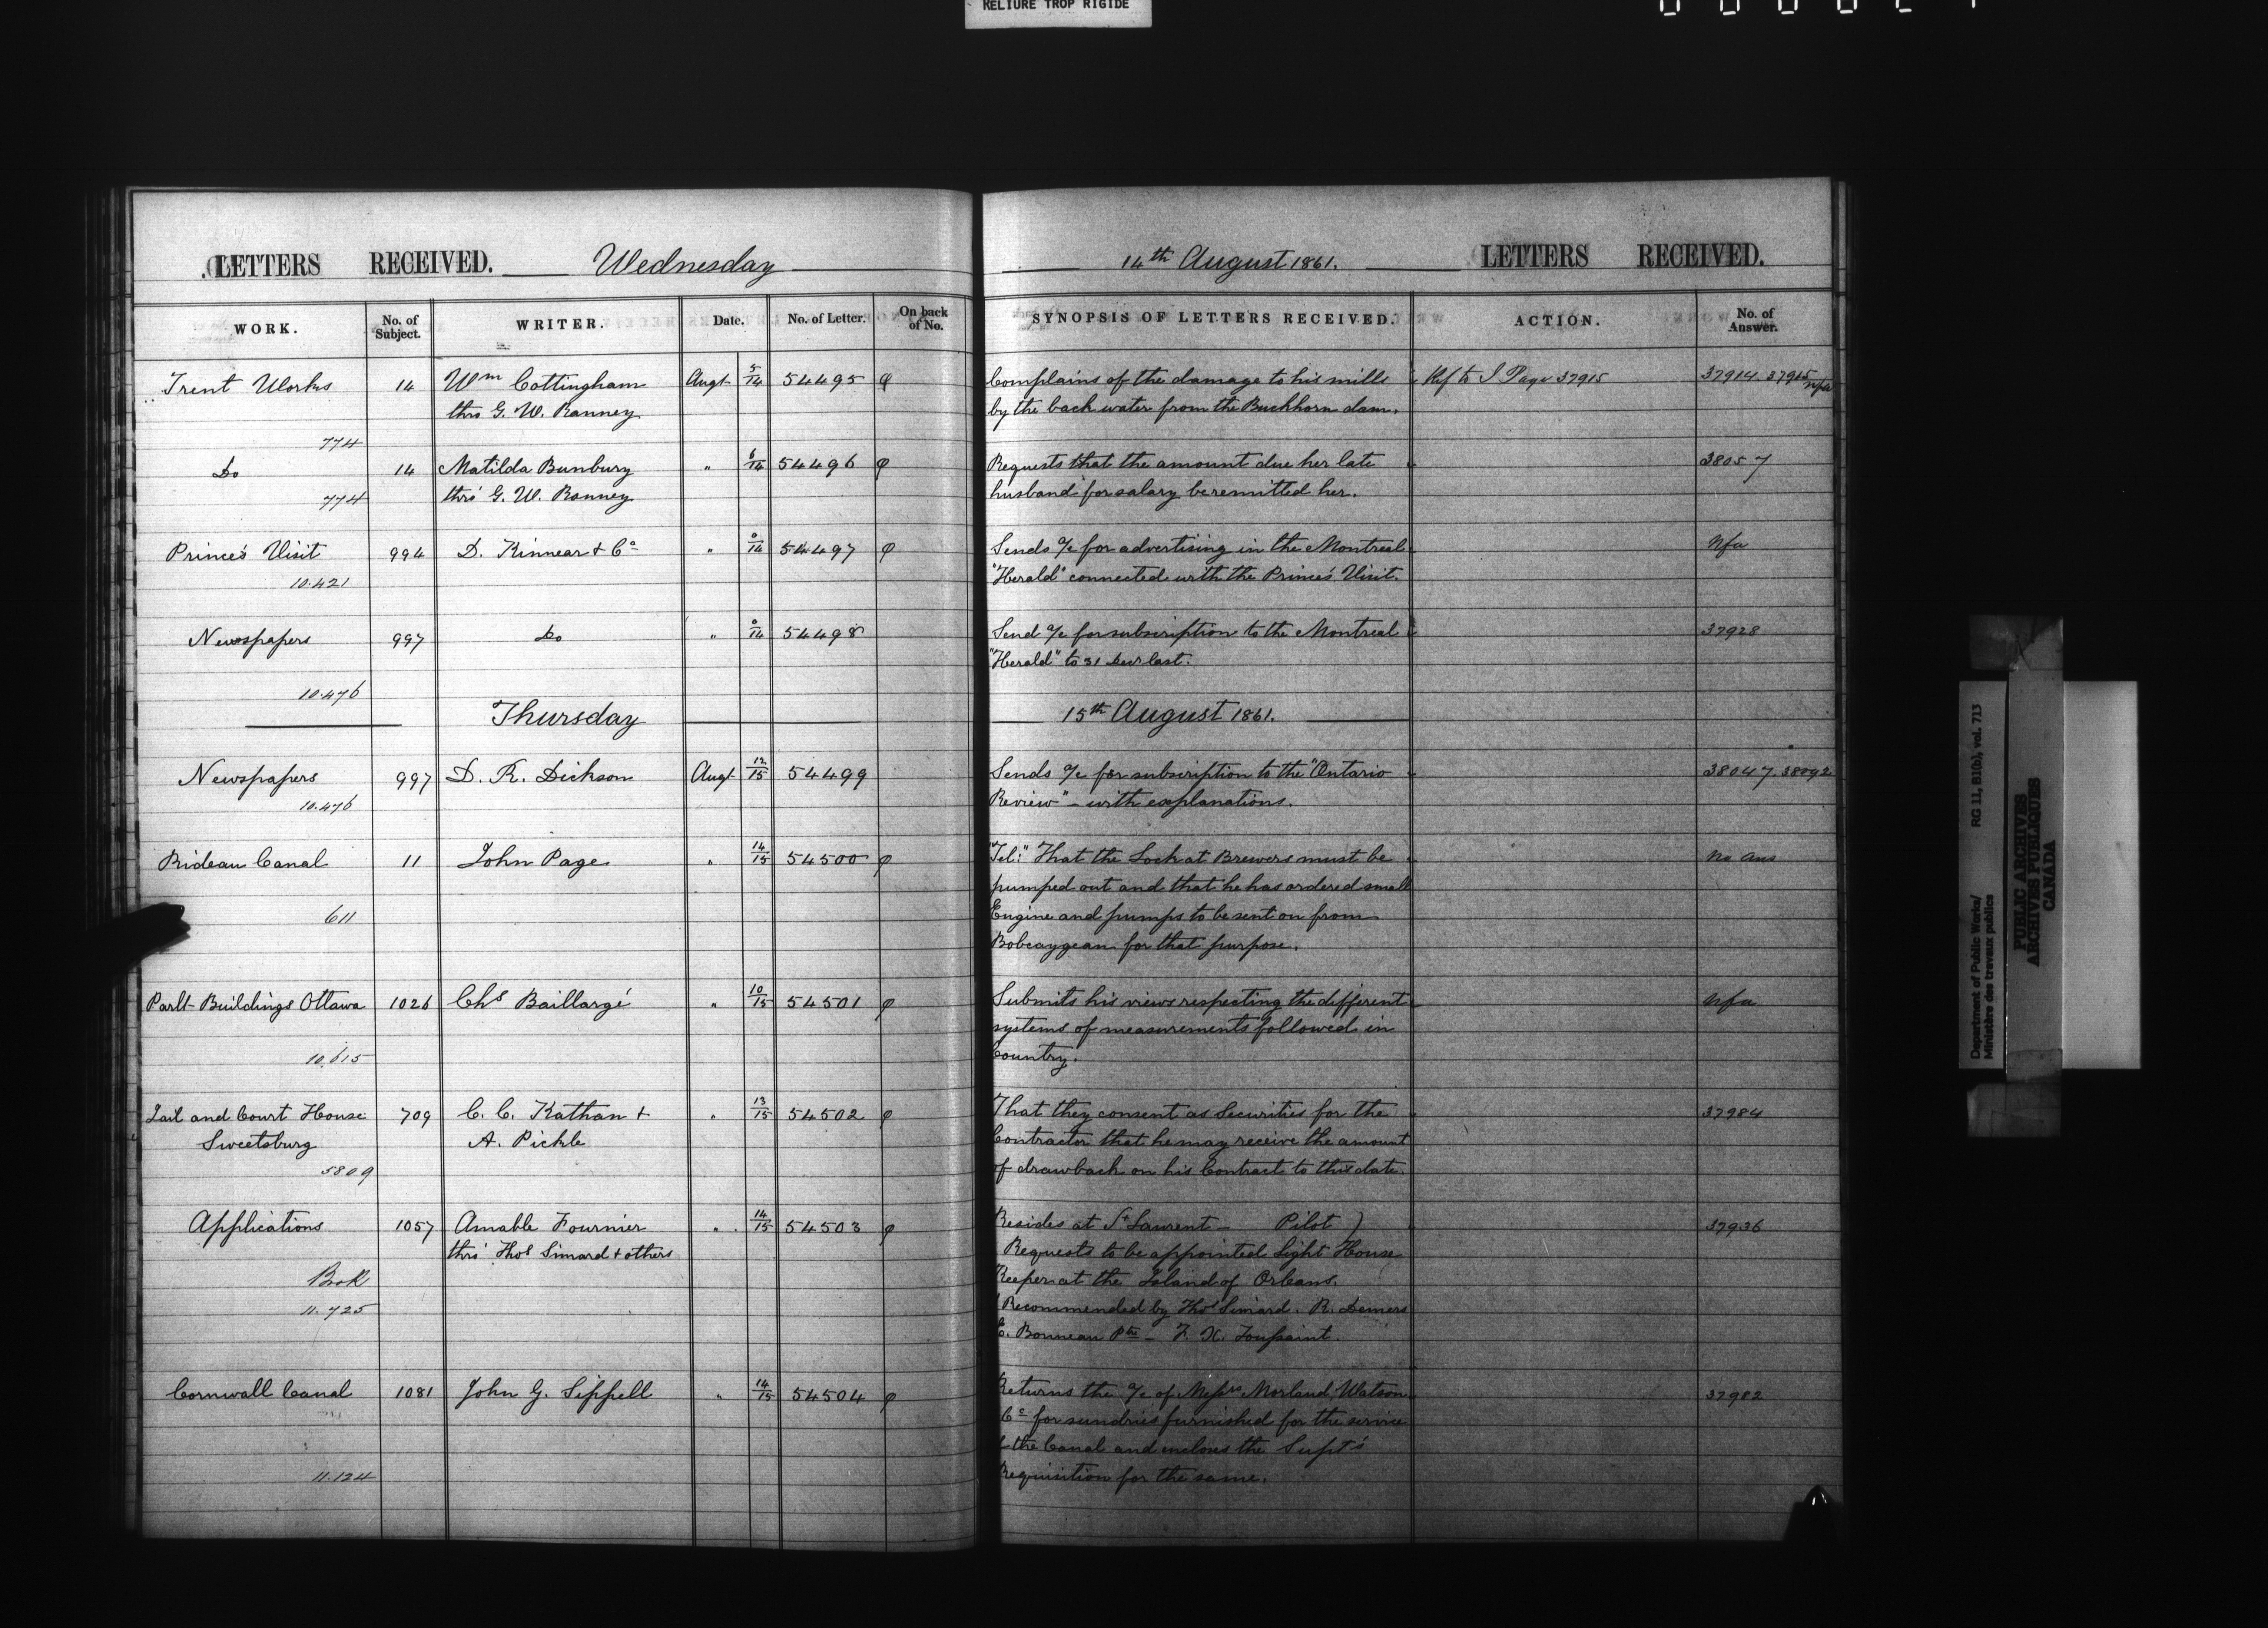 RELIURE TROP RIGIDE
LETTERS RECEIVED. Wednesday
WORK. No. of Subject. WRITER. Date. No. of Letter. On back of No.
Trent Works 14 Wm Cottingham Augt 5/14 54495 φ
thro G. W. Ranney
774
Do 14 Matilda Bunbury " 6/14 54496 φ
thro' G. W. Ranney
774
Prince's Visit 994 D. Kinnear & Co " 0/14 54497 φ
10.421
Newspapers 997 Do " 0/14 54498
10.476
Thursday
Newspapers 997 D. R. Dickson Augt 12/15 54499
10.476
Rideau Canal 11 John Page " 14/15 54500 φ
611
Parlt Buildings Ottawa 1026 Chs Baillargé " 10/15 54501 φ
10.615
Jail and Court House 709 C. C. Kathan & " 13/15 54502 φ
Sweetsburg A. Pickle
5809
Applications 1057 Amable Fournier " 14/15 54503 φ
thro' Thos Simard & others
Book
11.725
Cornwall Canal 1081 John G. Sippell " 14/15 54504 φ
11.124
14th August 1861. LETTERS RECEIVED.
SYNOPSIS OF LETTERS RECEIVED. ACTION. No. of Answer.
Complains of the damage to his mills Ref to J Page 37915 37914. 37915 nfa
by the back water from the Buckhorn dam.
Requests that the amount due her late 38057
husband for salary be remitted her.
Sends a/c for advertising in the Montreal Nfa
"Herald" connected with the Prince's Visit.
Send a/c for subscription to the Montreal 37928
"Herald" to 31 Decr last.
15th August 1861.
Sends a/c for subscription to the "Ontario 38047. 38092
Review" - with explanations.
"Tel:" That the Lock at Brewers must be No Ans
pumped out and that he has ordered small
Engine and pumps to be sent on from
Bobcaygean for that purpose.
Submits his views respecting the different Nfa
systems of measurements followed in
Country.
That they consent as Securities for the 37984
Contractor that he may receive the amount
of drawback on his Contract to this date.
Resides at St Laurent - Pilot ) 37936
Requests to be appointed Light House
Keeper at the Island of Orleans.
(Recommended by Thos Simard. R. Demers
C. Bonneau Ptre - F. X. Toussaint.
Returns the a/c of Messrs Morland Watson 37982
Co for sundries furnished for the service
of the Canal and incloses the Supt's
Requisition for the same.
Department of Public Works/ RG 11, B1(b), vol. 713
Ministère des travaux publics
PUBLIC ARCHIVES
ARCHIVES PUBLIQUES
CANADA